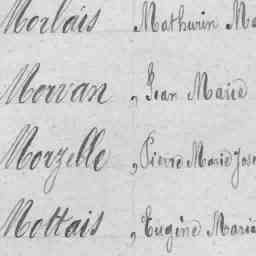 Morlais Mathurin Ma
Morvan, Jean Marie
Morzelle, Pierre Marie Jose
Mottais, Eugène Marie